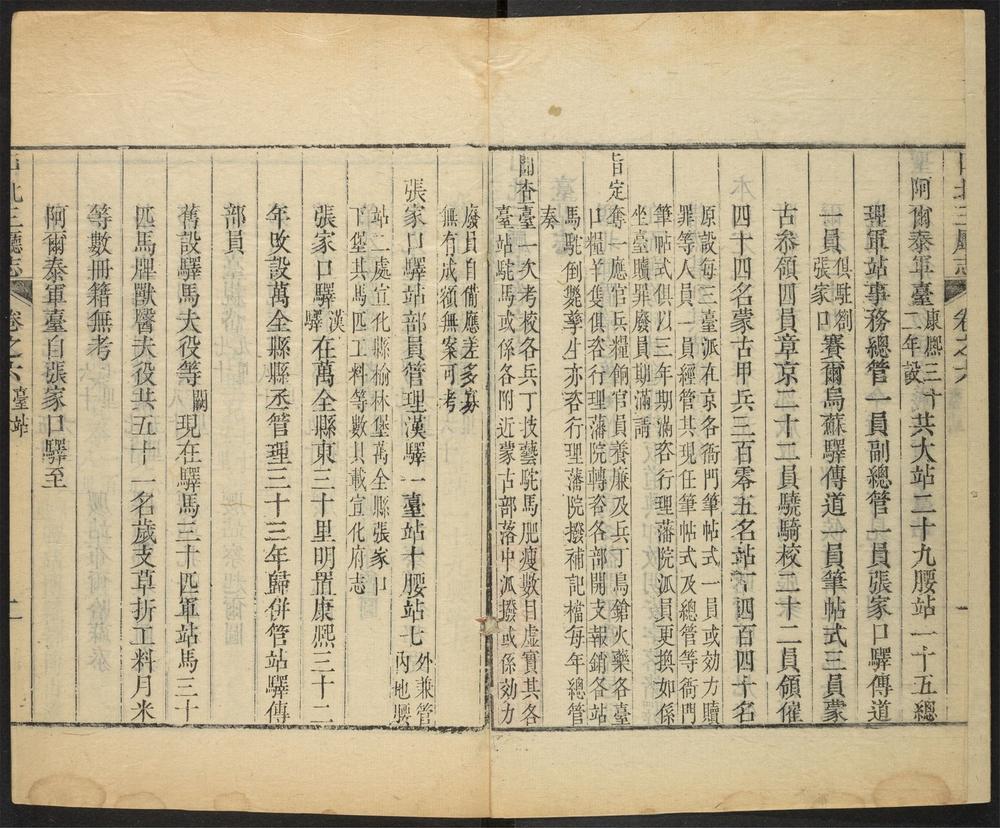 口北三廳志　卷之六　一
阿爾泰軍臺康熙三十二年設共大站二十九腰站一十五總
理軍站事務總管一員副總管一員張家口驛傳道
一員俱駐劄張家口賽爾烏蘇驛傳道一員筆帖式三員蒙
古叅領四員章京二十五員驍騎校三十二員領催
四十四名蒙古甲兵三百零五名站丁四百四十名
原設每三臺派在京各衙門筆帖式一員或効力贖
罪等人員一員經管其現任筆帖式及總管等衙門
筆帖式俱以三年期滿咨行理藩院派員更換如係
坐臺贖罪廢員期滿請
旨定奪一應官兵糧餉官員養廉及兵丁鳥鎗火藥各臺
口糧羊隻俱咨行理藩院轉咨各部開支報銷各站
馬駝倒斃孳生亦咨行理藩院撥補記檔每年總管
奏
聞查臺一次考校各兵丁技藝駝馬肥瘦數目虛實其各
臺站駝馬或係各附近蒙古部落中派撥或係効力
廢員自備應差多寡
無有成額無案可考
張家口驛站部員管理漢驛一臺站十腰站七外兼管內地腰
站二處宣化縣榆林堡萬全縣張家口
下堡其馬匹工料等數具載宣化府志
張家口驛漢驛在萬全縣東三十里明置康熙三十二
年改設萬全縣縣丞管理三十三年歸併管站驛傳
部員
舊設驛馬夫役等闕現在驛馬三十匹軍站馬三十
匹馬牌獸醫夫役共五十一名歲支草折工料月米
等數冊籍無考
阿爾泰軍臺自張家口驛至
口北三廳志　卷之六　臺站　二